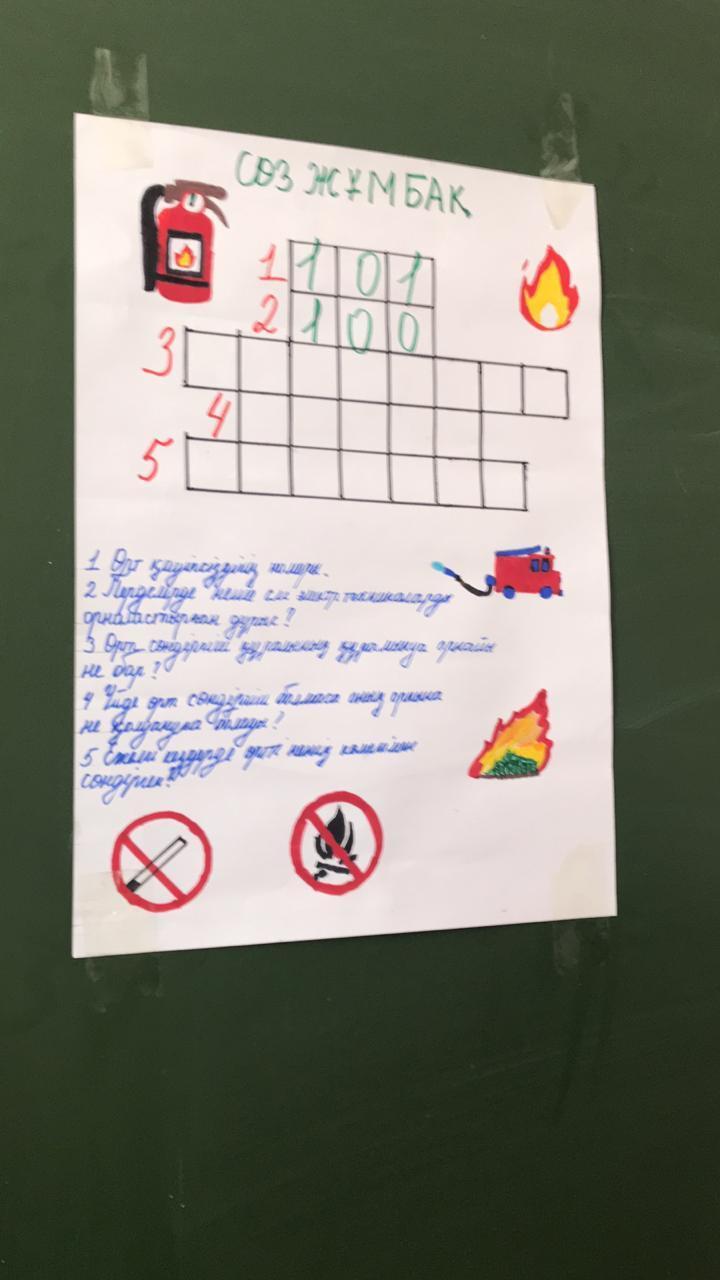 СӨЗ ЖҰМБАҚ
1 1 0 1
2 1 0 0
3
4
5
1 Өрт қауіпсіздіңің номері.
2 Пердслерде неше см электртехникаларды
орналастырған дұрыс?
3 Өрт сөндіргіш құралының құрамында арнайы
не бар?
4 Үйде өрт сөндіргіш болмаса оның орнына
не қолдануға болады?
5 Ежелгі кездерде өртті ненің көмегімен
сөндірген?